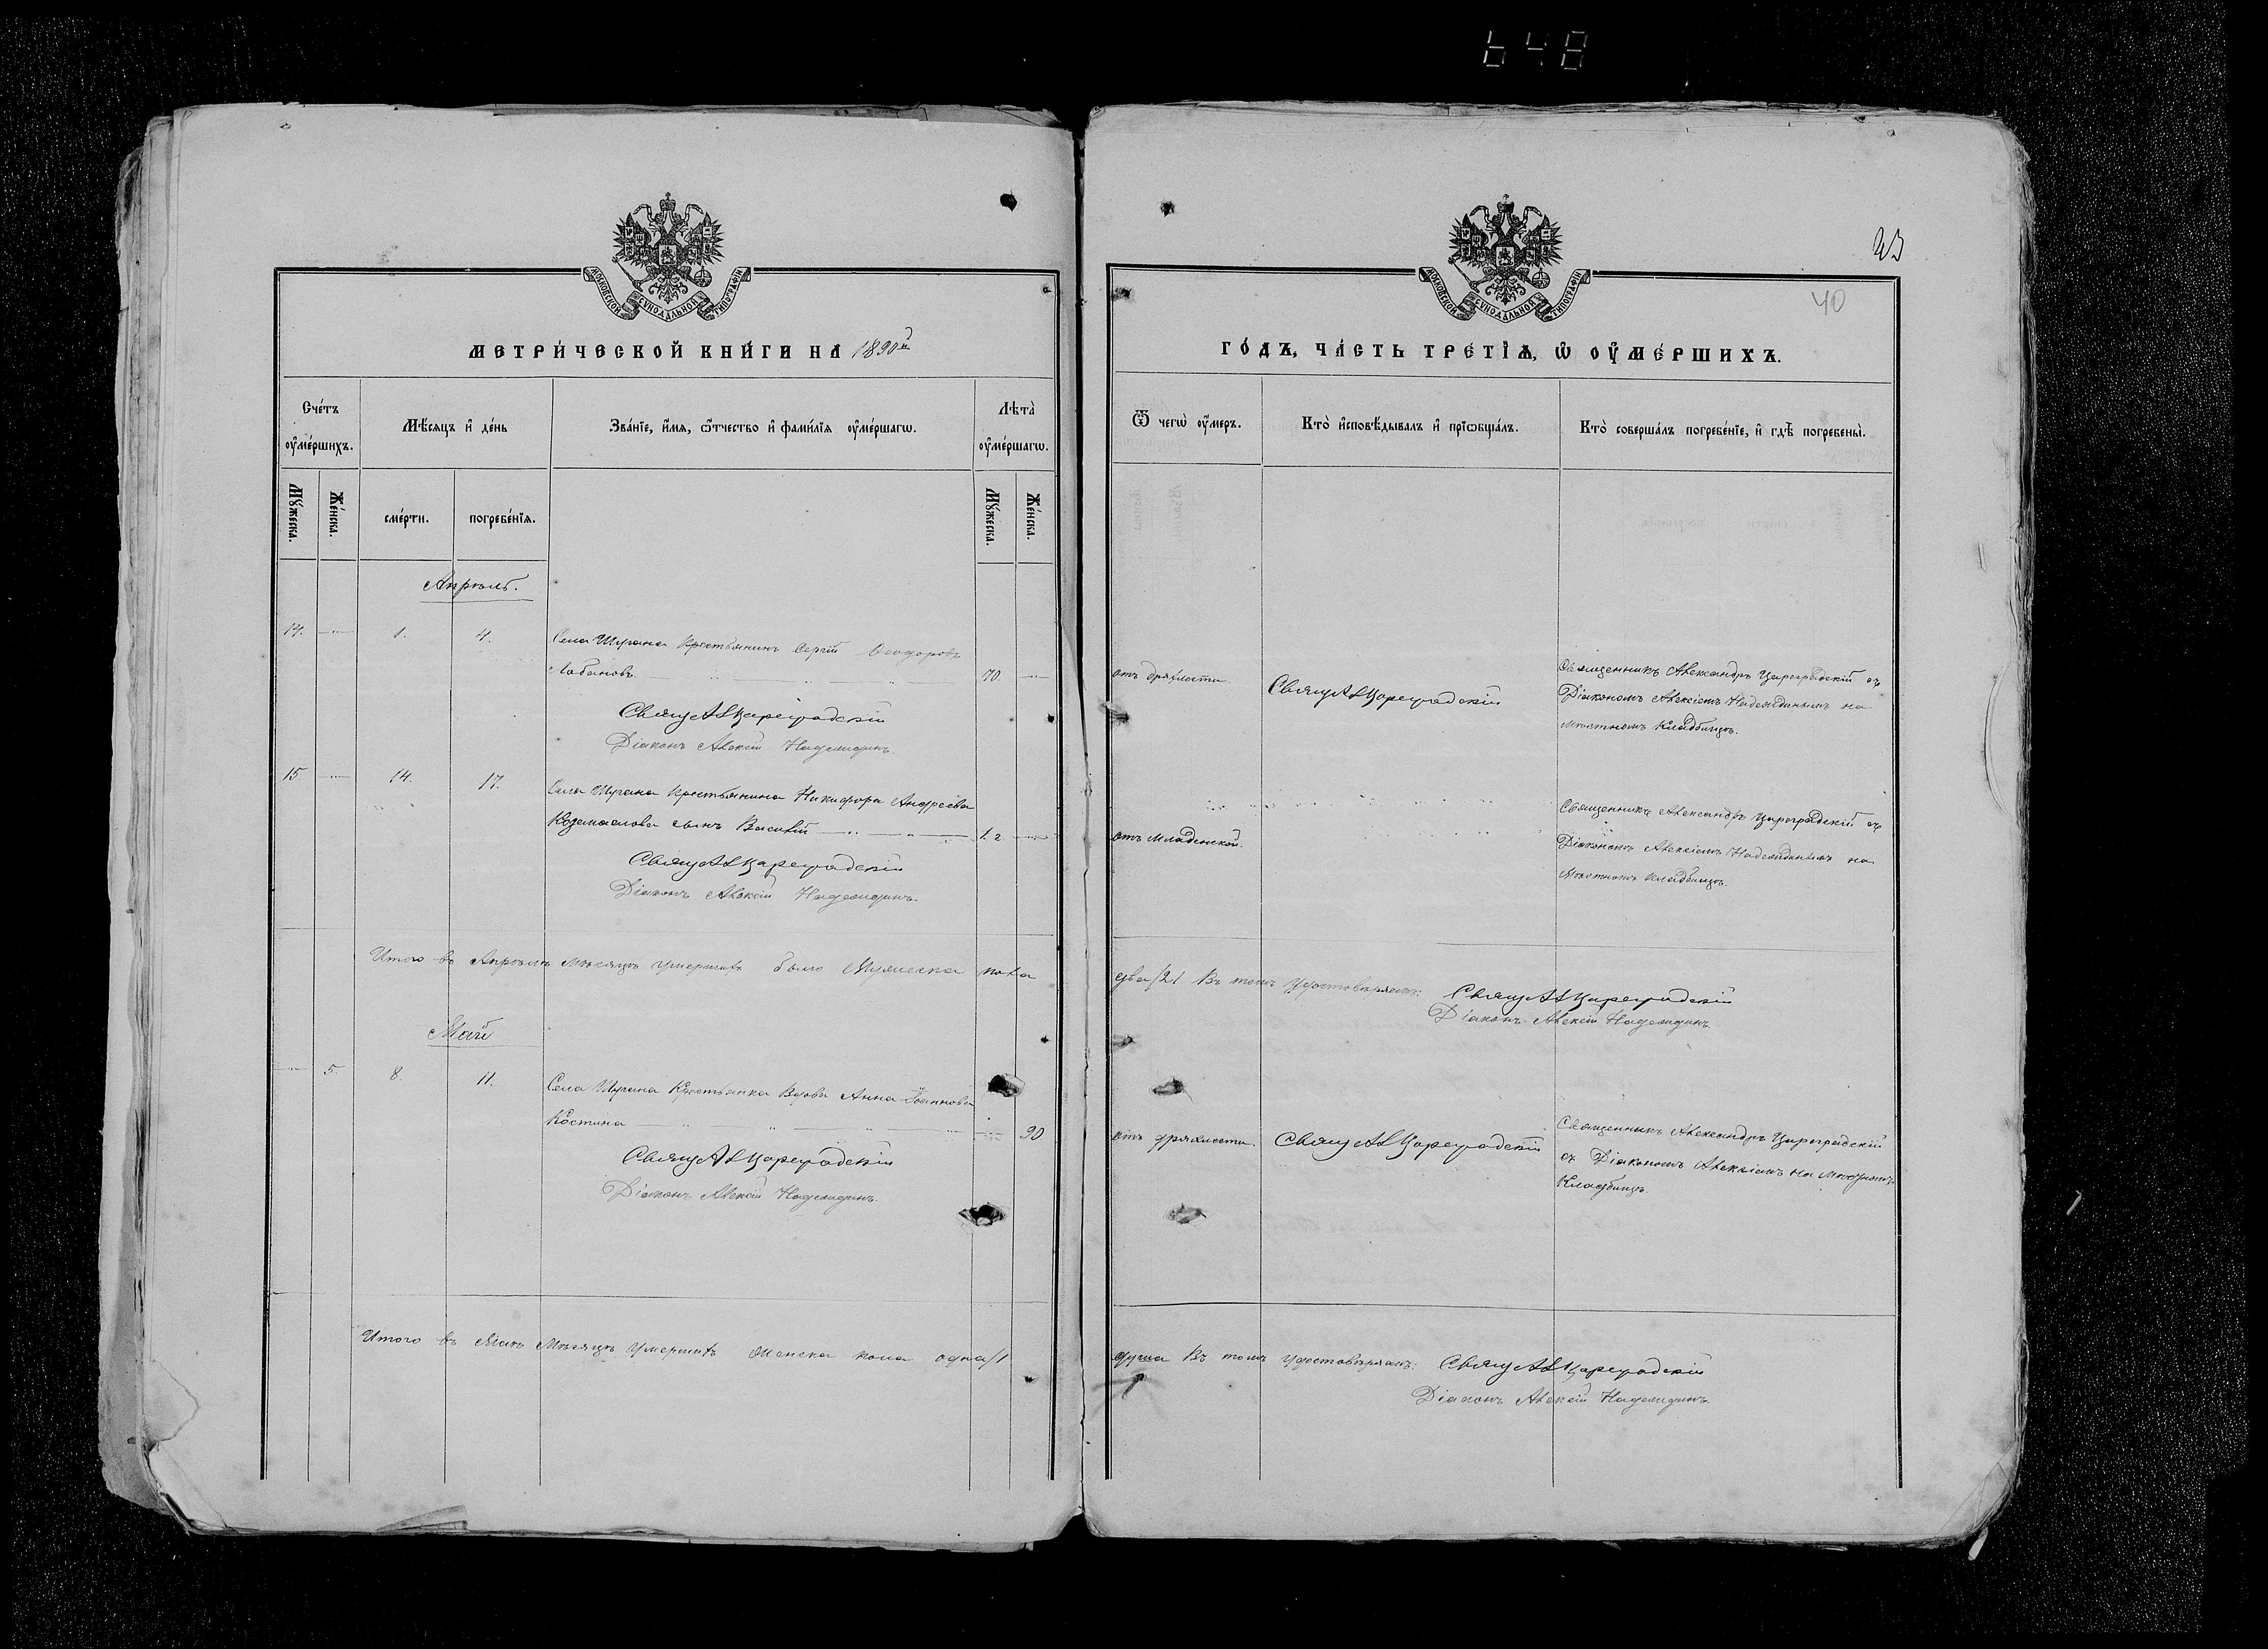 648
МОСКОВСКОЙ СѴНОДАЛЬНОЙ ТИПОГРАФІИ
МЕТРИ́ЧЕСКОЙ КНИ́ГИ НА 1890й
Сче́тъ ᲂу҆ме́ршихъ.
Мѣ́сяцъ и҆ де́нь
Зва́нїе, и҆́мя, ѻ҆́тчество и҆ фами́лїя ᲂу҆ме́ршагѡ.
Лѣта̀ ᲂу҆ме́ршагѡ.
Мꙋ́жеска.
Же́нска.
сме́рти.
погребе́нїѧ.
Мꙋ́жеска.
Же́нска.
Апрѣль.
14. 1. 4. Села Шугана Крестьянинъ Сергій Ѳеодоровъ
Лобановъ. 70.
Свящ Ал Цареградскій
Діаконъ Алексій Надеждинъ.
15 14. 17. Села Шугана Крестьянина Никифора Андреева
сынъ Василій
Свящ Ал Цареградскій
Діаконъ Алексій Надеждинъ.
Итого въ Апрѣлѣ мѣсяцѣ умершихъ было Мужеска пола
Май
5. 8. 11. Села Шугана Крестьянка Вдова Анна Іоаннова
Костина 90
Свящ Ал Цареградскій
Діаконъ Алексій Надеждинъ.
Итого въ Маѣ Мѣсяцѣ Умершихъ Женска пола одна/1
МОСКОВСКОЙ СѴНОДАЛЬНОЙ ТИПОГРАФІИ
40
ГО́ДЪ, ЧА́СТЬ ТРЕ́ТЇѦ, Ѡ҆ ОУ҆МЕ́РШИХЪ.
Ѿ чегѡ̀ ᲂу҆́меръ.
Кто̀ и҆сповѣ́дывалъ и҆ прїѡбща́лъ.
Кто̀ соверша́лъ погребе́нїе, и҆ гдѣ̀ погребены̀.
отъ дряхлости. Свящ Ал Цареградскій
Священникъ Александръ Цареградскій съ
Діакономъ Алексіемъ Надеждинымъ на
мѣстномъ кладбищѣ.
отъ младенской.
Священникъ Александръ Цареградскій съ
Діакономъ Алексіемъ Надеждинымъ на
Мѣстномъ кладбищѣ.
два/2/ Въ томъ Удостовѣряемъ: Свящ Ал Цареградскій
Діаконъ Алексій Надеждинъ.
отъ дряхлости. Свящ Ал Цареградскій
Священникъ Александръ Цареградскій
съ Діакономъ Алексіемъ на мѣстномъ
Кладбищѣ.
душа Въ томъ удостовѣряемъ: Свящ Ал Цареградскій
Діаконъ Алексій Надеждинъ.